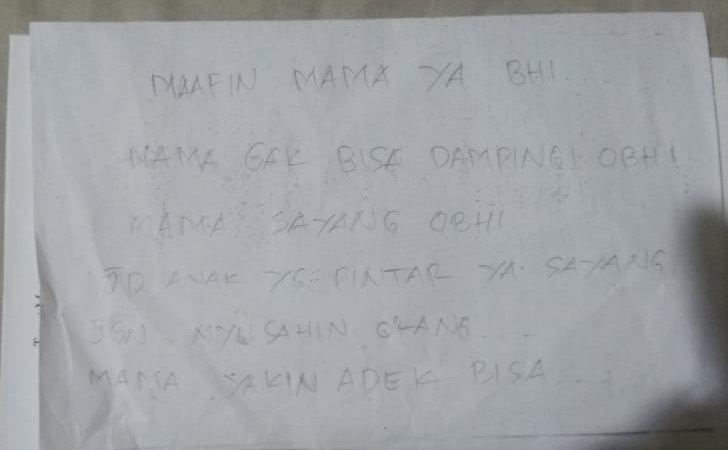 MAAFIN MAMA YA BHI....
MAMA GAK BISA DAMPINGI OBHI
MAMA SAYANG OBHI
JD ANAK YG PINTAR YA SAYANG
JGN NYUSAHIN ORANG....
MAMA YAKIN ADEK BISA....